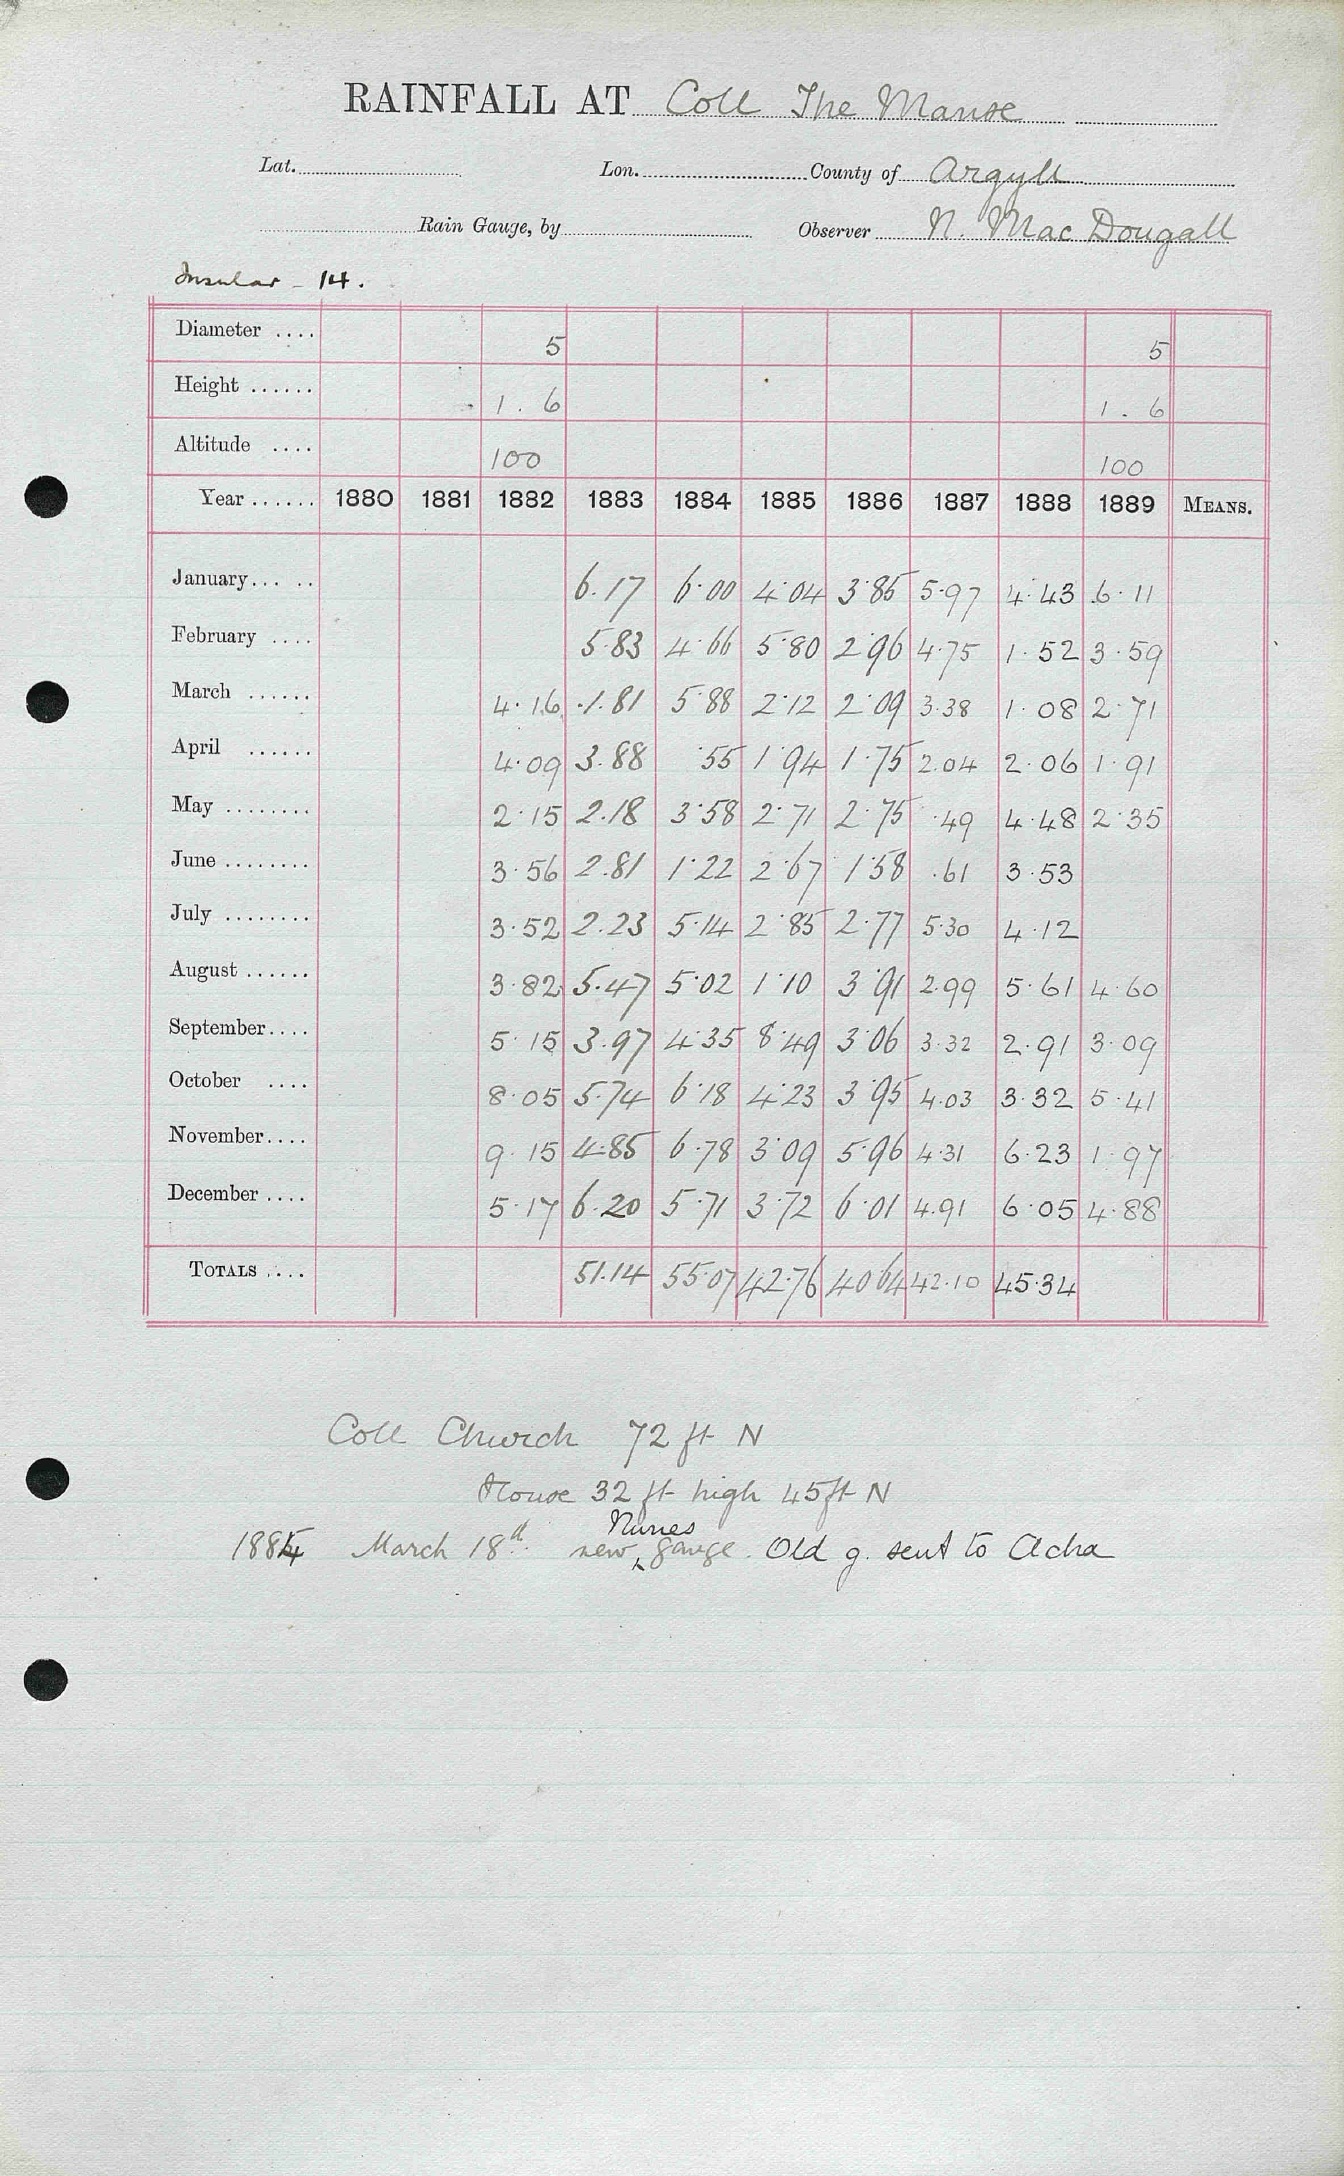 RAINFALL AT Coll The Manse
Lat. Lon. County of Argyll
Rain Gauge, by Observer N. MacDougall
Insular - 14.
Diameter .... 5 5
Height ...... 1.6 1.6
Altitude .... 100 100
Year ...... 1880 1881 1882 1883 1884 1885 1886 1887 1888 1889 MEANS.
January... .. 6.17 6.00 4.04 3.85 5.97 4.43 6.11
February .... 5.83 4.66 5.80 2.96 4.75 1.52 3.59
March ...... 4.16 1.81 5.88 2.12 2.09 3.38 1.08 2.71
April ...... 4.09 3.88 .55 1.94 1.75 2.04 2.06 1.91
May ........ 2.15 2.18 3.58 2.71 2.75 .49 4.48 2.35
June ........ 3.56 2.81 1.22 2.67 1.58 .61 3.53
July ........ 3.52 2.23 5.14 2.85 2.77 5.30 4.12
August ...... 3.82 5.47 5.02 1.10 3.91 2.99 5.61 4.60
September.... 5.15 3.97 4.35 8.49 3.06 3.32 2.91 3.09
October .... 8.05 5.74 6.18 4.23 3.95 4.03 3.32 5.41
November.... 9.15 4.85 6.78 3.09 5.96 4.31 6.23 1.97
December .... 5.17 6.20 5.71 3.72 6.01 4.91 6.05 4.88
TOTALS .... 51.14 55.07 42.76 40.64 42.10 45.34
Coll Church 72 ft N
House 32 ft high 45 ft N
1884 March 18th. new gauge. Old g. sent to Acha